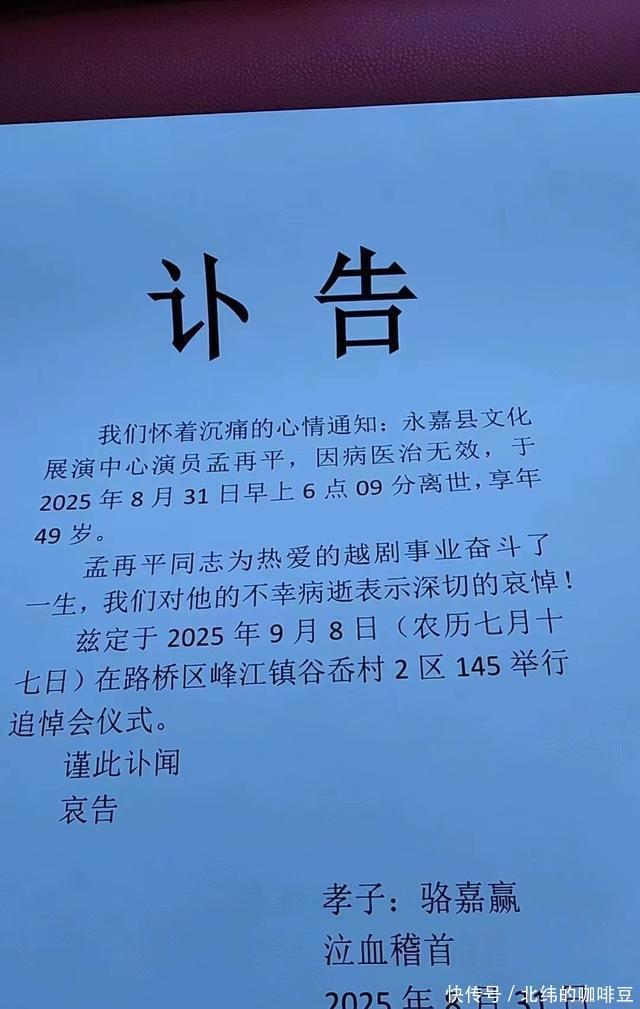 讣 告
我们怀着沉痛的心情通知：永嘉县文化
展演中心演员孟再平，因病医治无效，于
2025 年 8 月 31 日早上 6 点 09 分离世，享年
49 岁。
孟再平同志为热爱的越剧事业奋斗了
一生，我们对他的不幸病逝表示深切的哀悼！
兹定于 2025 年 9 月 8 日（农历七月十
七日）在路桥区峰江镇谷岙村 2 区 145 举行
追悼会仪式。
谨此讣闻
哀告
孝子：骆嘉赢
泣血稽首
2025 年 8 月 31 日
快传号／北纬的咖啡豆